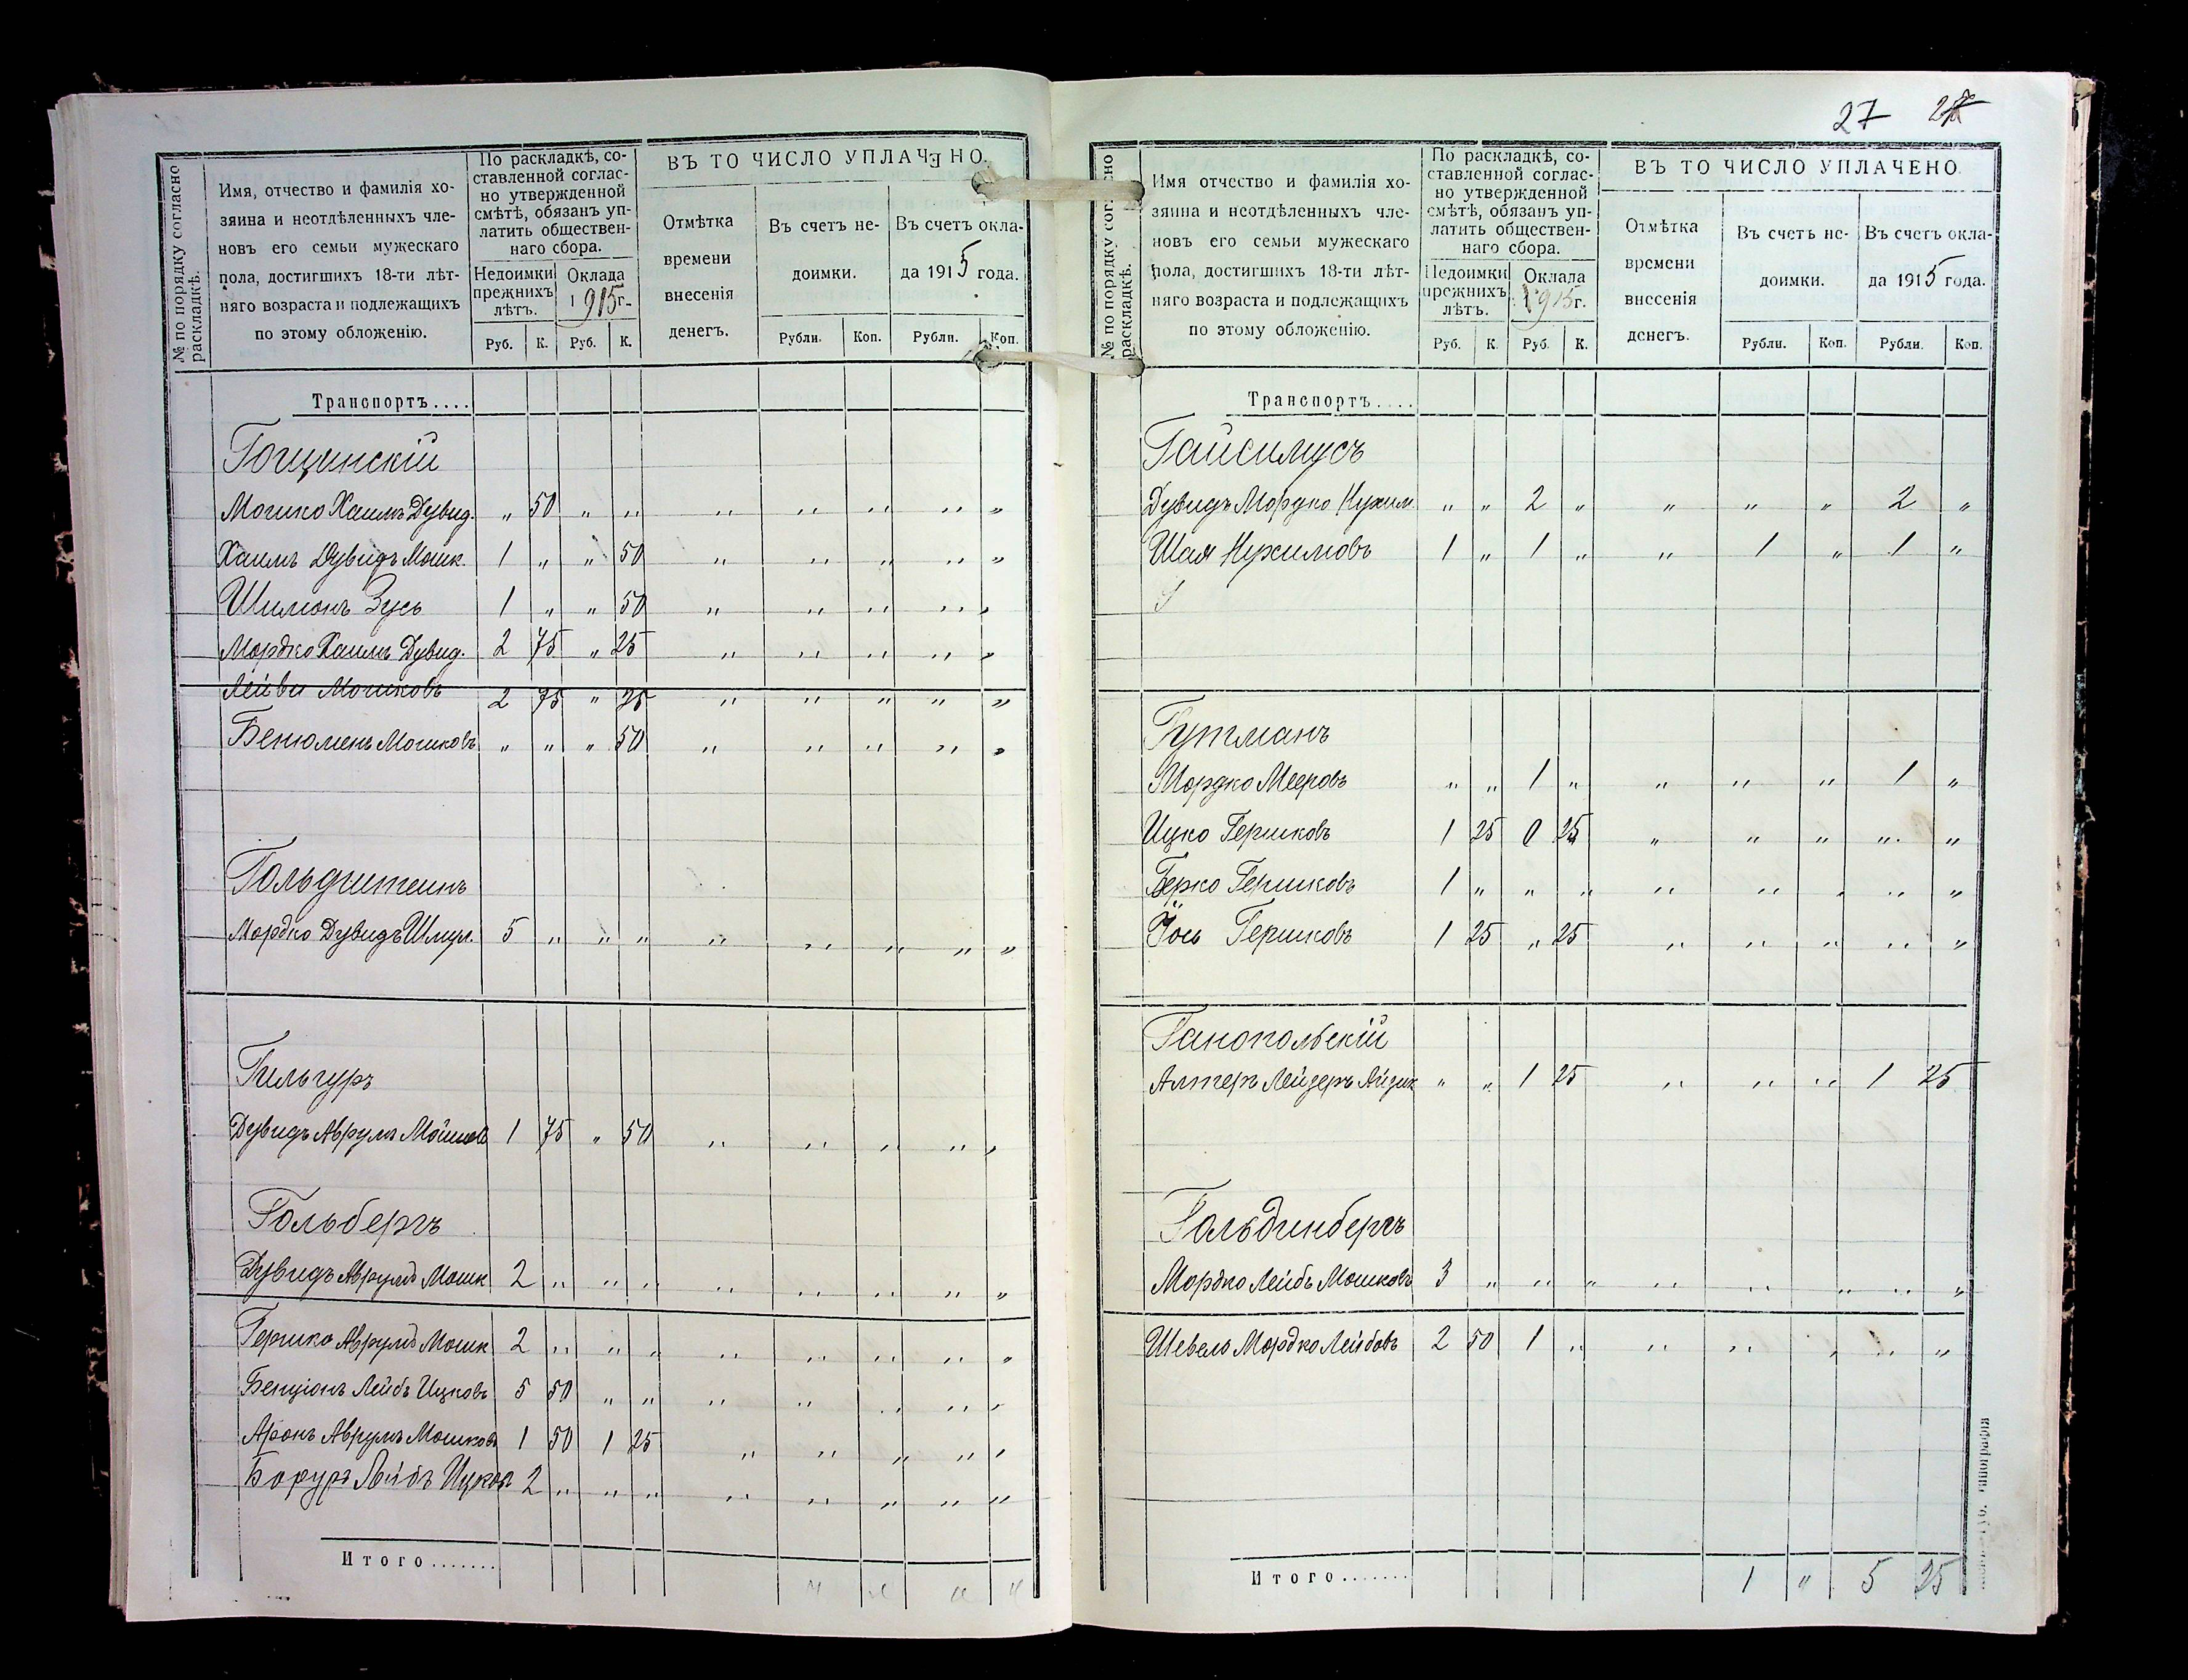 № по порядку согласно раскладкѣ.
Имя, отчество и фамилія хо-
зяина и неотдѣленныхъ чле-
новъ его семьи мужескаго
пола, достигшихъ 18-ти лѣт-
няго возраста и подлежащихъ
по этому обложенію.
По раскладкѣ, со-
ставленной соглас-
но утвержденной
смѣтѣ, обязанъ уп-
латить обществен-
наго сбора.
Недоимки
прежнихъ
лѣтъ.
Оклада
1915г.
Руб. К. Руб. К.
ВЪ ТО ЧИСЛО УПЛАЧЕНО.
Отмѣтка
времени
внесенія
денегъ.
Въ счетъ не-
доимки.
Въ счетъ окла-
да 1915 года.
Рубли. Коп. Рубли. Коп.
Транспортъ....
Гощинскій
Мошко Хаимъ Дувид. „ 50 „ „ „ „ „ „ „
Хаимъ Дувидъ Мошк. 1 „ „ 50 „ „ „ „ „
Шимонъ Зусь 1 „ „ 50 „ „ „ „ „
Мордко Хаимъ Дувид. 2 75 „ 25 „ „ „ „ „
Лейви Мошковъ 2 75 „ 25 „ „ „ „ „
Бенюменъ Мошковъ „ „ „ 50 „ „ „ „ „
Гольдштеинъ
Мордко Дувидъ Шмул. 5 „ „ „ „ „ „ „ „
Гильгуръ
Дувидъ Аврумъ Мошков 1 75 „ 50 „ „ „ „ „
Гольбергъ
Дувидъ Аврумъ Мошк 2 „ „ „ „ „ „ „ „
Гершко Аврумъ Мошк 2 „ „ „ „ „ „ „ „
Бенціонъ Лейбъ Ицковъ 5 50 „ „ „ „ „ „ „
Аронъ Аврумъ Мошковъ 1 50 1 25 „ „ „ „ „
Борухъ Лейбъ Ицков 2 „ „ „ „ „ „ „ „
Итого....... „ „ „ „
27
№ по порядку согласно раскладкѣ.
Имя отчество и фамилія хо-
зяина и неотдѣленныхъ чле-
новъ его семьи мужескаго
пола, достигшихъ 18-ти лѣт-
няго возраста и подлежащихъ
по этому обложенію.
По раскладкѣ, со-
ставленной соглас-
но утвержденной
смѣтѣ, обязанъ уп-
латить обществен-
наго сбора.
Недоимки
прежнихъ
лѣтъ.
Оклада
1915г.
Руб. К. Руб. К.
ВЪ ТО ЧИСЛО УПЛАЧЕНО.
Отмѣтка
времени
внесенія
денегъ.
Въ счетъ не-
доимки.
Въ счетъ окла-
да 1915 года.
Рубли. Коп. Рубли. Коп.
Транспортъ....
Гайсимусъ
Дувидъ Мордко Нухим. „ „ 2 „ „ „ „ 2 „
Шая Нухимовъ 1 „ 1 „ „ 1 „ 1 „
Гутманъ
Мордко Мееровъ „ „ 1 „ „ „ „ 1 „
Ицко Гершковъ 1 25 0 25 „ „ „ „ „
Берко Гершковъ 1 „ „ „ „ „ „ „ „
Іось Гершковъ 1 25 „ 25 „ „ „ „ „
Ганопольскій
Алтеръ Лейзеръ Айзик „ „ 1 25 „ „ „ 1 25
Гольдинбергъ
Мордко Лейбъ Мошковъ 3 „ „ „ „ „ „ „ „
Шевель Мордко Лейбовъ 2 50 1 „ „ „ „ „ „
Итого....... 1 „ 5 25
типографія